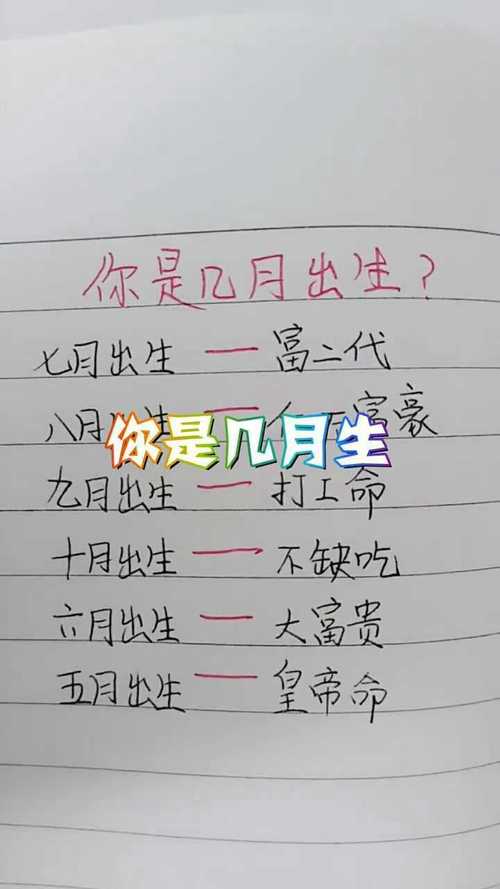 你是几月出生？
七月出生 — 富二代
八月 — 富豪
你是几月生
九月出生 — 打工命
十月出生 — 不缺吃
六月出生 — 大富贵
五月出生 — 皇帝命